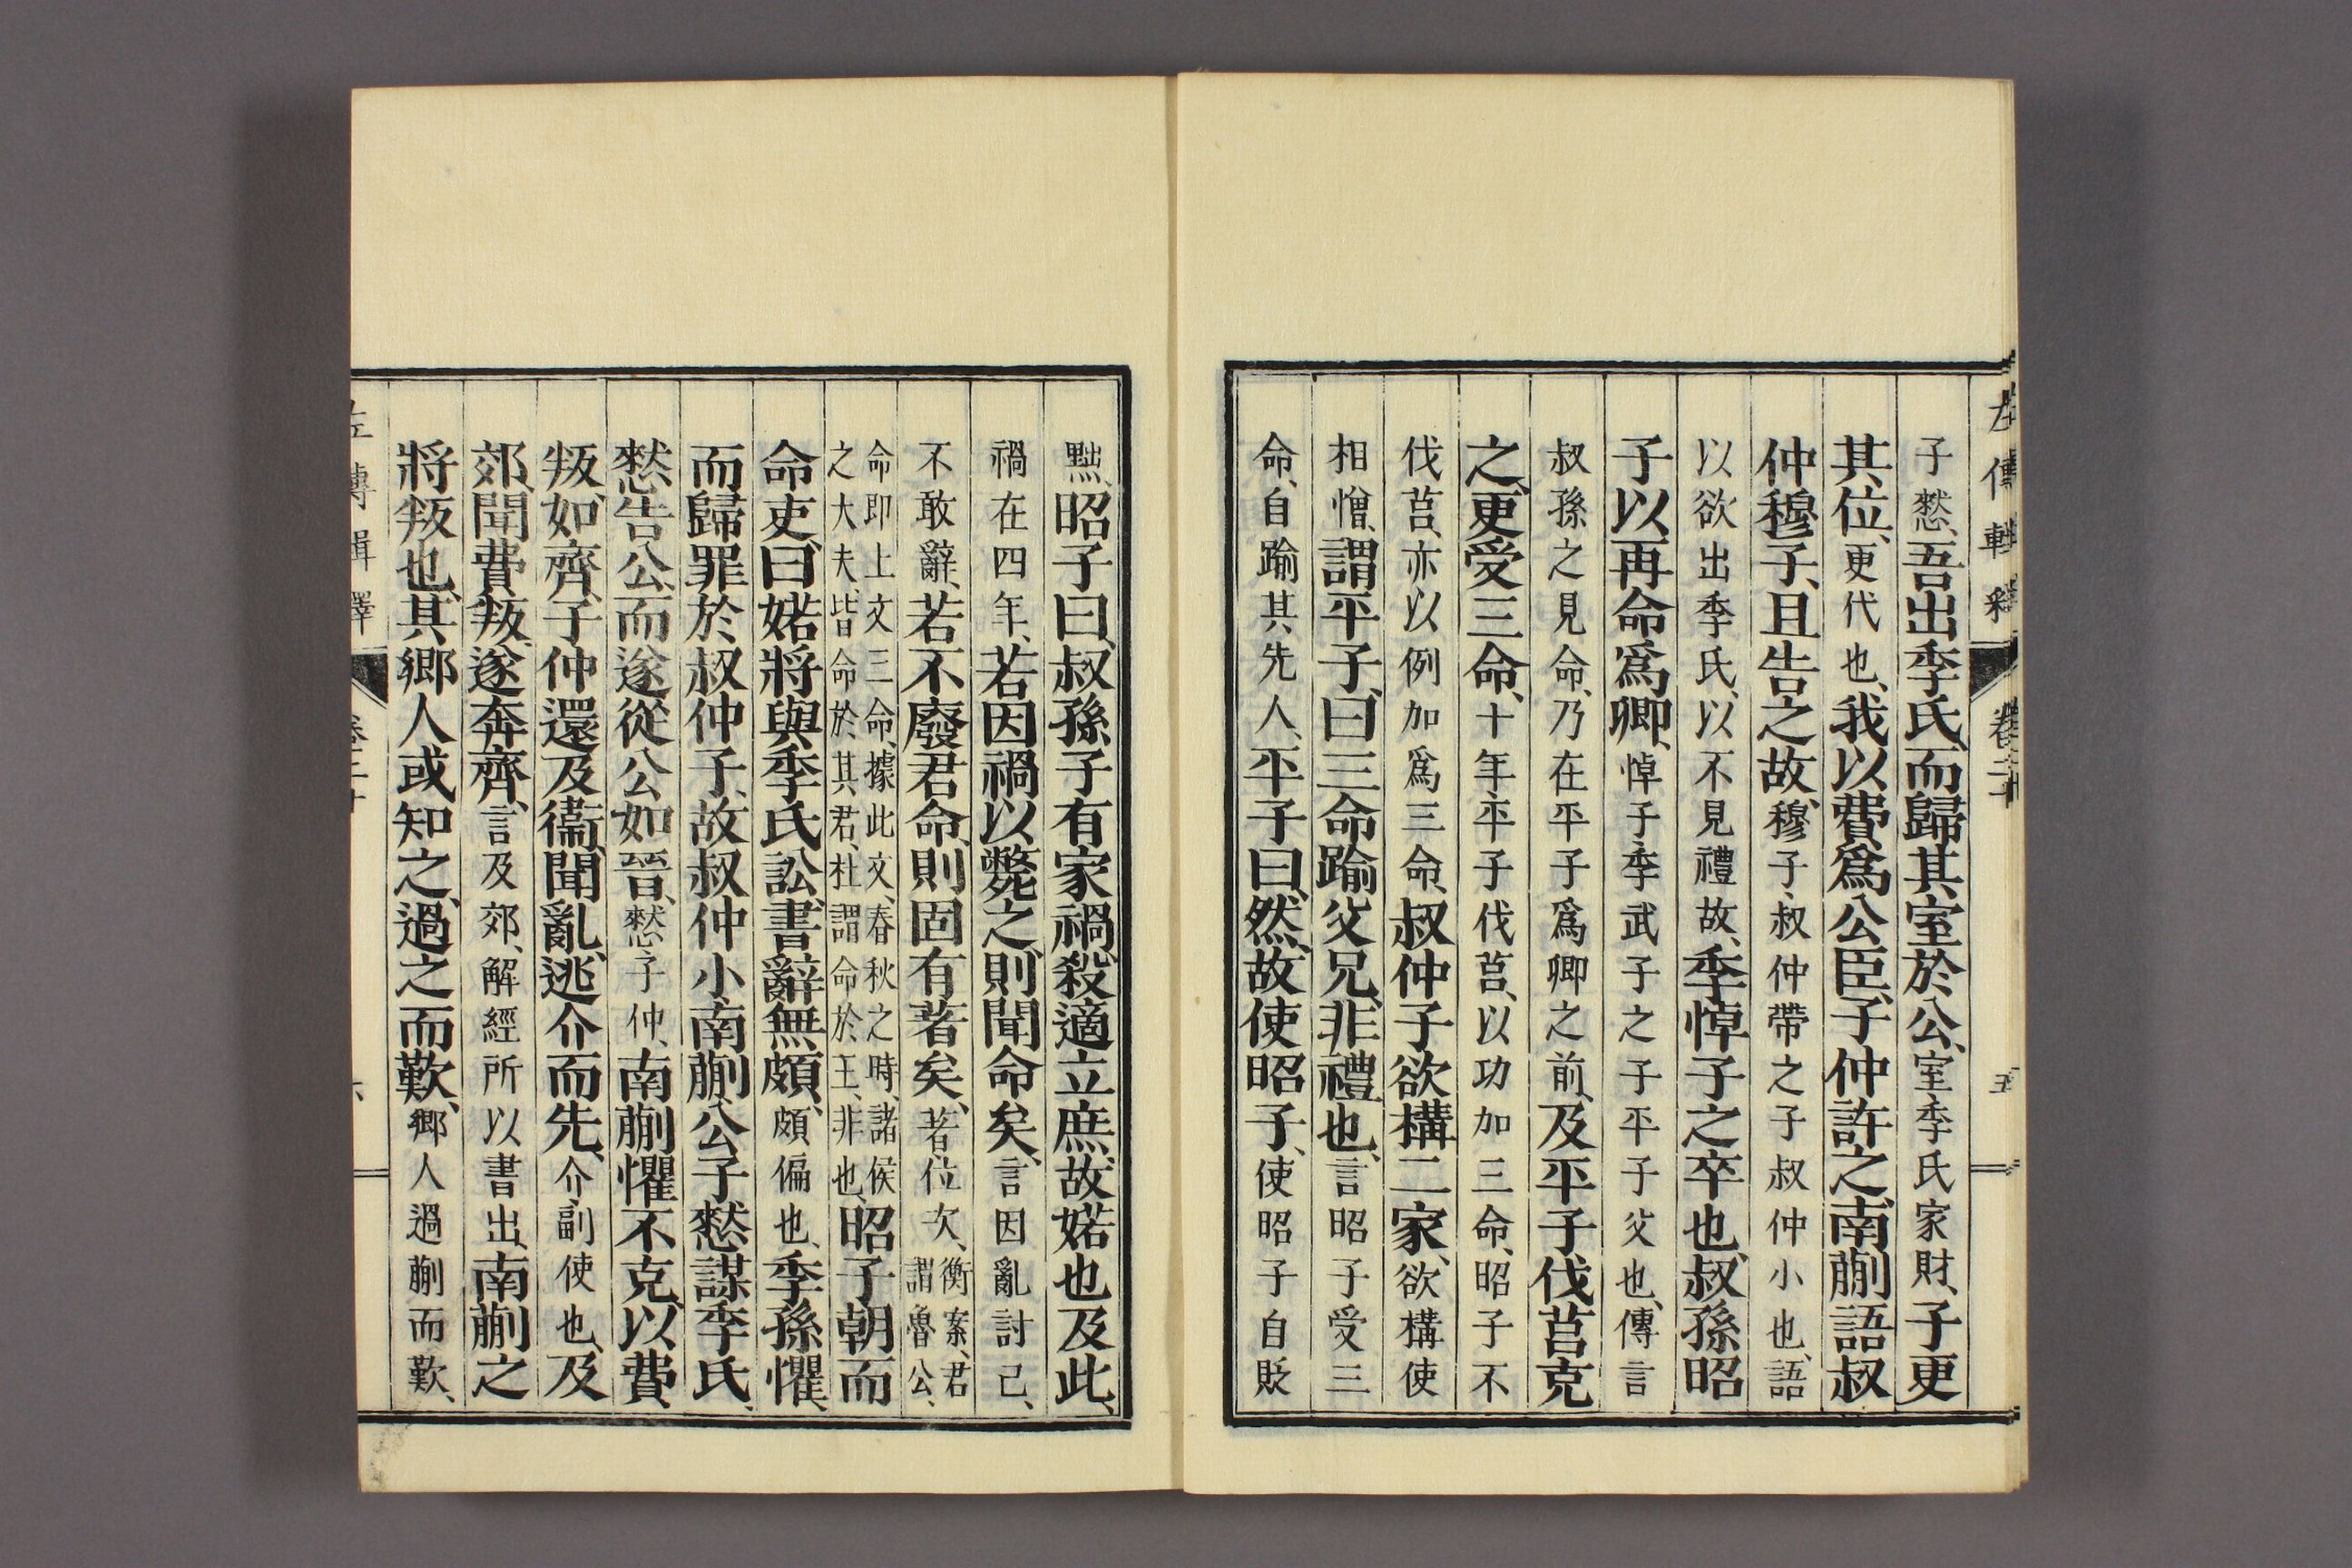 子憖、吾出季氏、而歸其室於公、室季氏家財、子更
其位、更代也、我以費爲公臣、子仲許之、南蒯語叔
仲穆子、且告之故、穆子、叔仲帶之子叔仲小也、語
以欲出季氏、以不見禮故、季悼子之卒也、叔孫昭
子以再命爲卿、悼子、季武子之子平子父也、傳言
叔孫之見命、乃在平子爲卿之前、及平子伐莒克
之、更受三命、十年平子伐莒、以功加三命、昭子不
伐莒、亦以例加爲三命、叔仲子欲構二家、欲構使
相憎、謂平子曰、三命踰父兄、非禮也、言昭子受三
命、自踰其先人、平子曰、然、故使昭子、使昭子自貶
黜、昭子曰、叔孫子有家禍、殺適立庶、故婼也及此、
禍在四年、若因禍以斃之、則聞命矣、言因亂討己、
不敢辭、若不廢君命、則固有著矣、著、位次、衡案、君
謂魯公、
命即上文三命、據此文、春秋之時、諸侯
之大夫、皆命於其君、杜謂命於王、非也、昭子朝而
命吏曰、婼將與季氏訟、書辭無頗、頗偏也、季孫懼、
而歸罪於叔仲子、故叔仲小、南蒯、公子憖謀季氏、
憖告公、而遂從公如晉、憖子仲、南蒯懼不克、以費
叛如齊、子仲還及衞、聞亂、逃介而先、介副使也、及
郊、聞費叛、遂奔齊、言及郊、解經所以書出、南蒯之
將叛也、其鄉人或知之、過之而歎、鄉人過蒯而歎、
左傳輯釋
卷二十
五